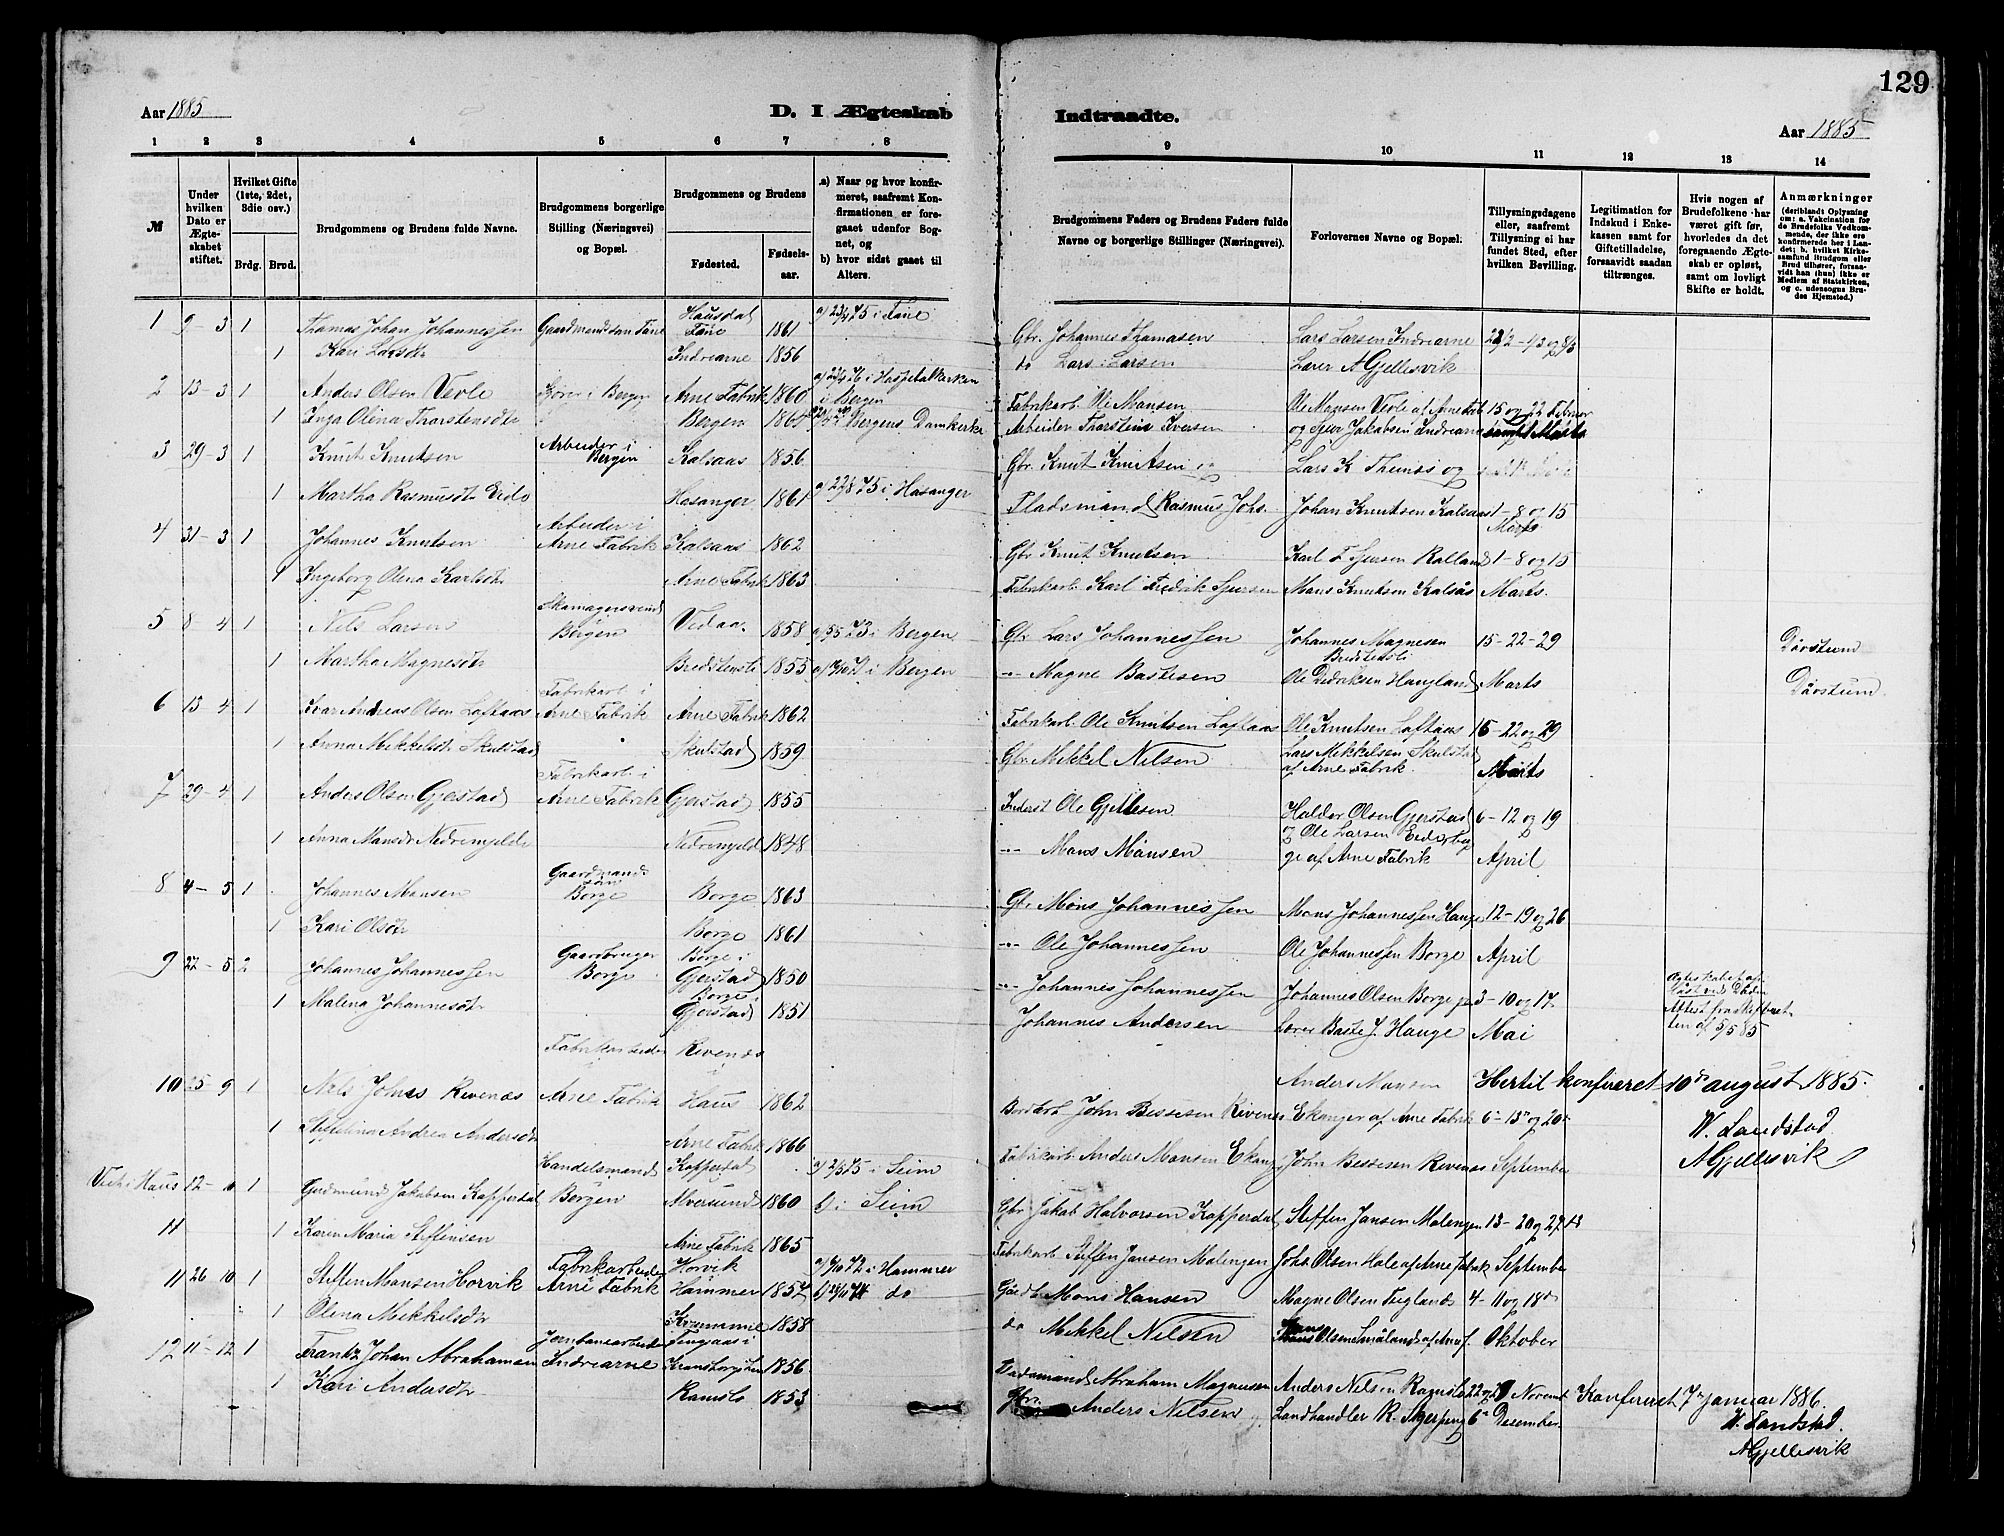 129
Aar 1885
D. I Ægteskab
Indtraadte.
Aar 1885
1 2 3 4 5 6 7 8
9 10 11 12 13 14
№
Under hvilken Dato er Ægteskabet stiftet.
Hvilket Gifte (1ste, 2det, 3die osv.)
Brdg. Brud.
Brudgommens og Brudens fulde Navne.
Brudgommens borgerlige Stilling (Næringsvei) og Bopæl.
Brudgommens og Brudens
Fødested.
Fødselsaar.
a.) Naar og hvor konfirmeret, saafremt Konfirmationen er foregaaet udenfor Sognet, og
b) hvor sidst gaaet til Alters.
Brudgommens Faders og Brudens Faders fulde Navne og borgerlige Stillinger (Næringsvei).
Forlovernes Navne og Bopæl.
Tillysningsdagene eller, saafremt Tillysning ei har fundet Sted, efter hvilken Bevilling.
Legitimation for Indskud i Enkekassen samt for Giftetilladelse, forsaavidt saadan tiltrænges.
Hvis nogen af Brudefolkene har været gift før, hvorledes da det foregaaende Ægteskab er opløst, samt om lovligt Skifte er holdt.
Anmærkninger
(deriblandt Oplysning om: a. Vakcination for de Brudefolks Vedkommende, der ikke ere konfirmerede her i Landet; b. hvilket Kirkesamfund Brudgom eller Brud tilhører, forsaavidt han (hun) ikke er Medlem af Statskirken, og c. udensogns Brudes Hjemsted.)
1 9-3 1 Thomas Johan Johannessen Gaardmandssøn Fane Hausdal Fane 1861 i Fane Gbr. Johannes Thomasen Lars Larsen Indrearne
1 Kari Larsdtr Indrearne 1856 do Lars Larsen Lærer A Gjellesvik
2 13-3 1 Anders Olsen Vevle i Bergen Arne Fabrik 1860 i Hospitalkirken i Bergen Fabrikarb. Ole Monsen Ole Monsen Vevle af Arne Fab 15 og 22 Februar
1 Inga Olina Thorstensdtr Bergen Bergens Domkirke Arbeider Thorsten Iversen og Sjur Jakobsen Indrearne samt Marts
3 29-3 1 Knut Knutsen Arbeider i Bergen Kalsaas 1856 Gbr. Knut Knutsen og Lars K. og
1 Martha Rasmusdtr Eide Hosanger 1861 i Hosanger Pladsmand Rasmus Johs. Johan Knutsen Kalsaas 1-8 og 15 Marts
4 31-3 1 Johannes Knutsen Arbeider i Arne Fabrik Kalsaas 1862 Gbr Knut Knutsen Karl F Sjursen 1-8 og 15
1 Ingeborg Olena Karlsdtr Arne Fabrik 1863 Fabrikarb. Karl Fredrik Sjursen Mons Knutsen Kalsås Marts.
5 8-4 1 Nils Larsen Skomagersvend Bergen Vedaa 1858 i Bergen Gbr Lars Johannessen Johannes Magnesen Bredstensli 15-22-29 Døvstum
1 Martha Magnesdtr Bredstensli 1855 i Bergen Magne Bastesen Ole Didriksen Haugland Marts Døvstum
6 13-4 1 Ivar Andreas Olsen Loftaas Fabrikarb i Arne Fabrik Arne Fabrik 1862 Fabrikarb. Ole Knutsen Loftaas Ole Knutsen Loftaas 15-22 og 29
1 Anna Mikkelsdtr Skulstad Skulstad 1859 Gbr. Mikkel Nilsen Lars Mikkelsen Skulstad af Arne Fabrik. Marts
7 29-4 1 Anders Olsen Gjerstad Fabrikarb. i Arne Fabrik Gjerstad 1855 Inderst Ole Gjellesen Haldor Olsen Gjerstad 6-12 og 19
1 Anna Monsdr Nedremjelde Nedremjeld 1848 Mons Monsen og Ole Larsen af Arne Fabrik April
8 4-5 1 Johannes Monsen Gaardmandssøn Borge Borge 1863 Gbr Mons Johannessen Mons Johannessen Hauge 12-19 og 26
1 Kari Olsdtr Borge 1861 Ole Johannessen Ole Johannessen Borge April
9 22-5 2 Johannes Johannessen Gaardbruger Borge Borge i Gjerstad 1850 Johannes Johannessen Johannes Olsen Borge og 3-10 og 17
1 Malena Johannesdtr Borge i Gjerstad 1851 Johannes Andersen Lærer Baste J. Hauge Mai Attest fra Skifteretten af 5/5 85
10 25-9 1 Nils Johns Revenæs Fabrikarbeider i Arne Fabrik Revenæs i Haus 1862 John Bessesen Rivenes Anders Monsen Ekanger af Arne Fabrik 6-13 og 20
Hertil konfereret 10de august 1885.
W. Landstad
A Gjellesvik
1 Andrea Andersdtr Arne Fabrik 1866 Fabrikarb. Anders Monsen Ekang John Bessesen Revenæs September
Viet i Haus 12-10 1 Gudmund Jakobsen Kopperdal Handelsmand Bergen Kopperdal Alversund 1860 i Seim b) i Seim Gbr. Jakob Halvorsen Kopperdal Steffen Jansen Molengen 13-20 og 27
11 1 Karen Maria Steffensen Arne Fabrik 1865 Fabrikarb. Steffen Jansen Molengen Johs Olsen Hole af Arne Fabrik September
11 26-10 1 Steffen Monsen Horvik Fabrikarbeider Arne Fabrik Horvik Hammer 1857 i Hammer do Gårdb Mons Hansen Magne Olsen Teigland 4-11 og 18
1 Olena Mikkelsdtr 1858 do Mikkel Nilsen Hans Olsen Småland Oktober
12 11-12 1 Frantz Johan Abrahamsen Jernbanearbeider Indrearne 1856 Abraham Magnusen Anders Nilsen Novemb
1 Kari Andersdtr Ramslo 1853 Gbr. Anders Nilsen Landhandler R. December.
Konfereret 7 januar 1886.
W. Landstad.
A Gjellesvik